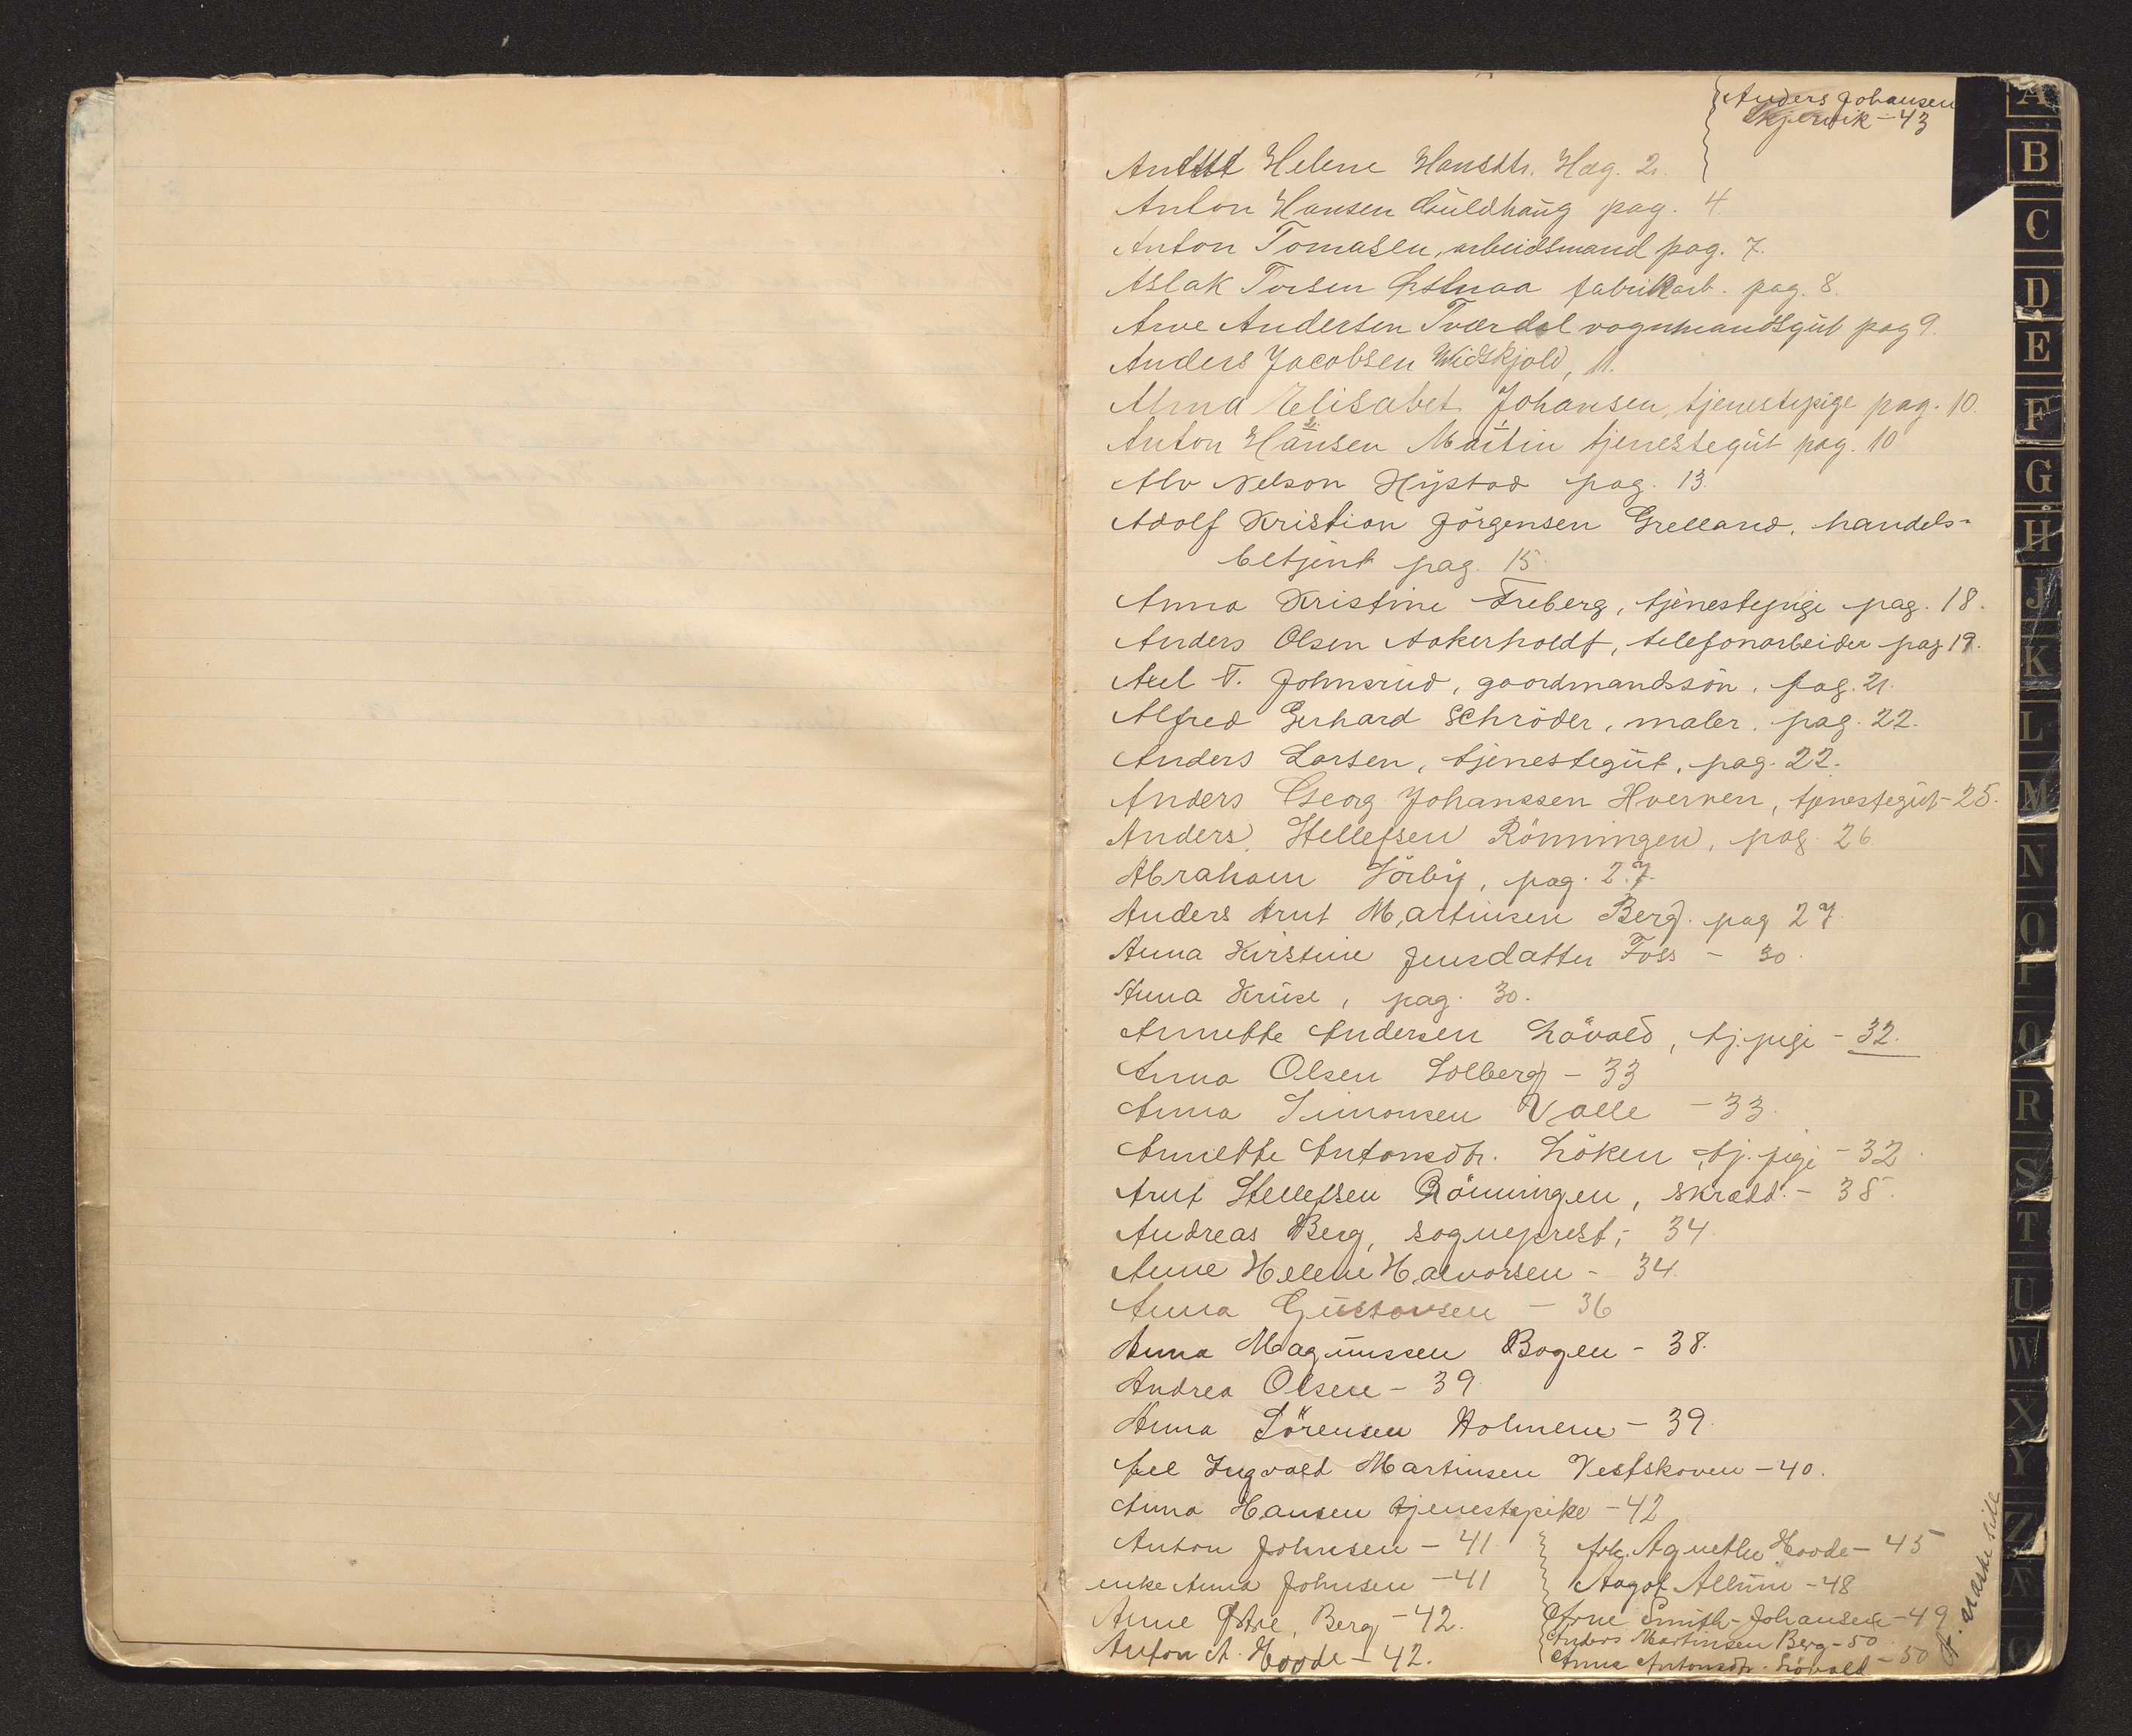 Anders Johansen
Skjervik - 43
Helene Hansdtr. Hag. 2.
Anton Hansen Guldhaug pag. 4.
Anton Tomasen, arbeidsmand pag. 7.
Aslak Torsen fabrikarb. pag. 8.
Arve Andersen Tværdal vognmandsgut pag 9.
Anders Jacobsen Widskjold, 11.
Alma Elisabet Johansen, tjenestepige pag. 10.
Anton Hansen Martin tjenestegut pag. 10
Alv Nelson Hystad pag. 13.
Adolf Kristian Jörgensen Grelland, handels-
betjent pag. 15.
Anna Kristine Freberg, tjenestepige pag. 18.
Anders Olsen Aakerholdt, telefonarbeider pag 19.
Axel T. Johnsrud, gaardmandssön, pag. 21.
Alfred Gerhard Schröder, maler, pag. 22.
Anders Larsen, tjenestegut, pag. 22.
Anders Georg Johanssen Hverven, tjenestegut - 25.
Anders Stellefsen Rönningen, pag. 26
Abraham Sörby, pag. 27.
Anders Arnt Martinsen Berg. pag 27.
Anna Kirstine Jensdatter Foss - 30.
Anna Kruse, pag. 30.
Annette Andersen Lövald, tj.pige - 32.
Anna Olsen Solberg - 33
Anna Simonsen Valle - 33.
Annette Antonsdtr. Löken, tj.pige - 32.
Arnt Stellefsen Rönningen, skrædd. - 35.
Andreas Berg, sogneprest, - 34.
Anne Helene Halvorsen - 34.
Anna Gustavsen - 36
Anna Magnussen Bogen - 38.
Andrea Olsen - 39.
Anna Sörensen Holmene - 39.
Axel Ingvald Martinsen Vestskoven - 40.
Anna Hansen tjenestepike - 42
Anton Johnsen - 41
frk. Agnethe Hovde - 45
enke Anna Johnsen - 41
Aagot Allum - 48
Anne Berg - 42.
Arne Smith-Johansen - 49
Anton A. Hovde - 42.
Anders Martinsen Berg - 50
Anne Antonsdtr. Lövald - 50
A. næste side
A
B
C
D
E
F
G
H
J
K
L
M
N
O
P
Q
R
S
T
U
W
X
Y
Z
Ø